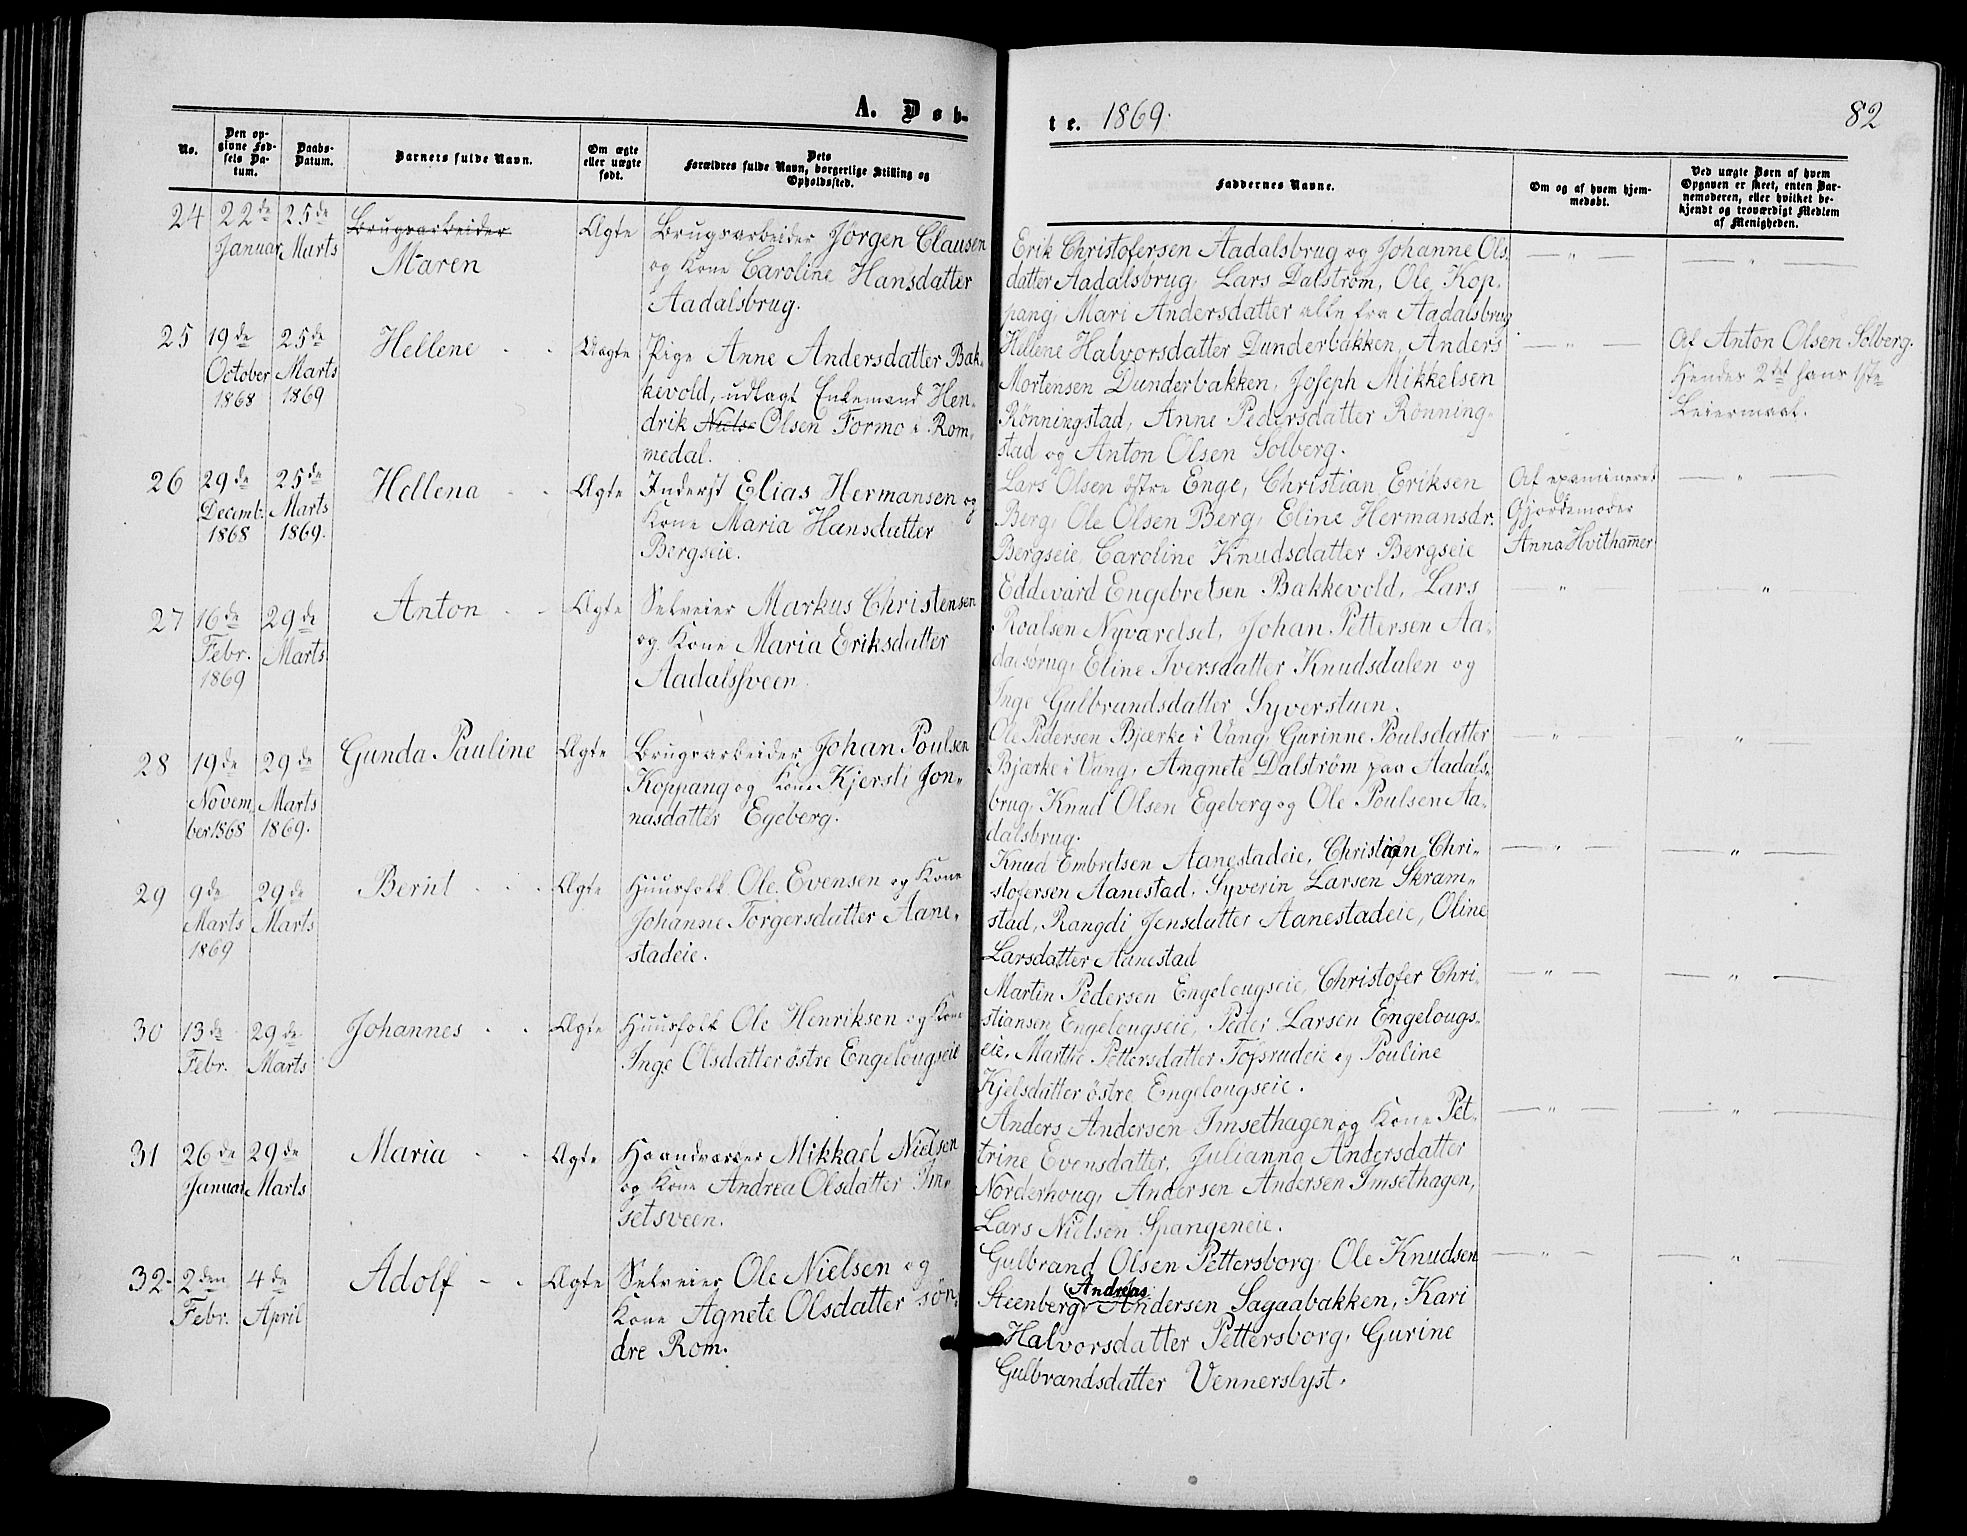 A. Døb-
te. 1869.
82
No.
Den op-
givne Fød-
sels Da-
tum.
Daabs-
Datum.
Barnets fulde Navn.
Om ægte
eller uægte
født.
Dets
Forældres fulde Navn, borgerlige Stilling og
Opholdssted.
Faddernes Navne.
Om og af hvem hjem-
medøbt.
Ved uægte Børn af hvem
Opgaven er skeet, enten Bar-
nemoderen, eller hvilket be-
kjendt og troværdigt Medlem
af Menigheden.
24
22de
Januar
25de
Marts
Brugsarbeider
Maren
Ægte
Brugsarbeider Jörgen Clausen
og Kone Caroline Hansdatter
Aadalsbrug.
Erik Christofersen Aadalsbrug og Johanne Ols.
datter Aadalsbrug, Lars Dalström, Ole Kop,
pang, Mari Andersdatter alle fra Aadalsbrug
— " —
— " —
25
19de
October
1868
25de
Marts
1869
Hellene - -
Uægte
Pige Anne Andersdatter Bak,
kevold, udlagt Enkemand Hen,
drik Niels Olsen Formo i Rom,
medal.
Hellene Halvorsdatter Dunderbakken, Anders
Mortensen Dunderbakken, Joseph Mikkelsen
Rönningstad, Anne Pedersdatter Rönning,
stad og Anton Olsen Solberg.
— " —
Af Anton Olsen Solberg.
Hendes 2det hans 1ste
Leiermaal.
26
29de
Decemb.
1868
25de
Marts
1869.
Hellena - -
Ægte
Inderst Elias Hermansen og
Kone Maria Hansdatter
Bergseie.
Lars Olsen östre Enge, Christian Eriksen
Berg, Ole Olsen Berg, Eline Hermansdr.
Bergseie, Caroline Knudsdatter Bergseie
Af examineret
Gjordemoder
Anna Hvithammer
— " —
27
16de
Febr.
1869
29de
Marts
Anton - -
Ægte
Selveier Markus Christensen
og Kone Maria Eriksdatter
Aadalssveen.
Eddevard Engebretsen Bakkevold, Lars
Roalsen Nyværelset, Johan Pettersen Aa,
dalsbrug, Eline Iversdatter Knudsdalen og
Inge Gulbrandsdatter Syverstuen.
— " —
"
28
19de
Novem,
ber 1868
29de
Marts
1869.
Gunda Pauline
Ægte
Brugsarbeider Johan Poulsen
Koppang og Kone Kjersti Jon,
nasdatter Egeberg.
Ole Pedersen Bjærke i Vang, Gurinne Poulsdatter
Bjærke i Vang, Angnete Dalström paa Aadals,
brug, Knud Olsen Egeberg og Ole Poulsen Aa,
dalsbrug.
— " —
— " —
29
9de
Marts
1869
29de
Marts
Bernt - - -
Ægte
Huusfolk Ole Evensen og Kone
Johanne Torgersdatter Aane,
stadeie.
Knud Embretsen Aanestadeie, Christian Chri,
stofersen Aanestad, Syverin Larsen Skram,
stad, Rangdi Jensdatter Aanestadeie, Oline
Larsdatter Aanestad
— " —
— " —
30
13de
Febr.
29de
Marts
Johannes - -
Ægte
Huusfolk Ole Henriksen og Kone
Inge Olsdatter östre Engelougseie
Martin Pedersen Engelougseie, Christofer Chri,
stiansen Engelougseie, Peder Larsen Engelougs,
eie, Marthe Pettersdatter Tofsrudeie og Pouline
Kjelsdatter östre Engelougseie.
— " —
— " —
31
26de
Januar
29de
Marts
Maria - -
Ægte
Haandværker Mikkael Nielsen
og Kone Andrea Olsdatter Im,
setsveen.
Anders Andersen Imsethagen og Kone Pet,
trine Evensdatter, Julianna Andersdatter
Norderhoug, Andersen Andersen Imsethagen,
Lars Nielsen Spangeneie.
— " —
— " —
32
2den
Febr.
4de
April
Adolf - -
Ægte
Selveier Ole Nielsen og
Kone Agnete Olsdatter sön,
dre Rom.
Gulbrand Olsen Pettersborg, Ole Knudsen
Steenberg, Andersen Sagaabakken, Kari
Andreas
Halvorsdatter Pettersborg, Gurine
Gulbrandsdatter Vennerslyst.
— " —
— " —